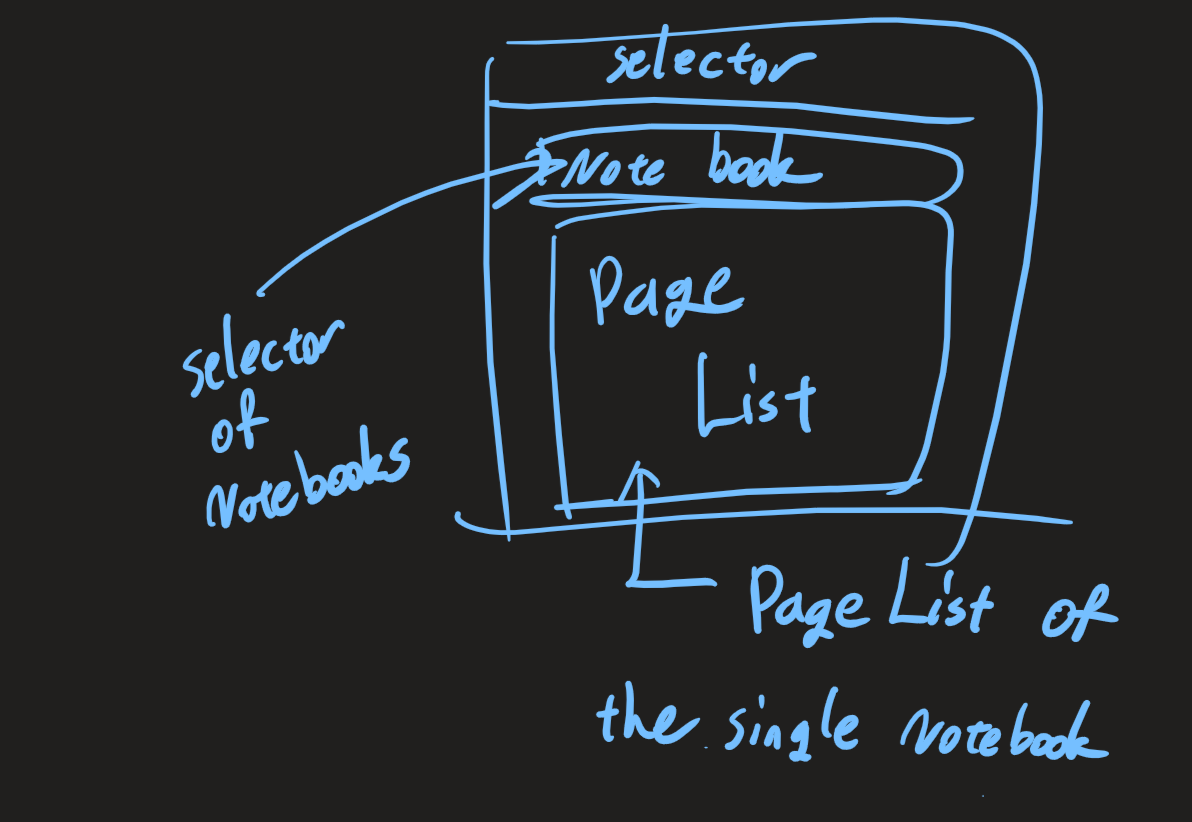 selector
Note book
Page
List
selector
of
Notebooks
Page List of
the single Notebook